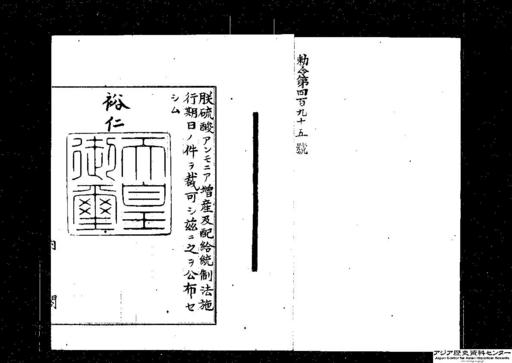 勅令第四百九十五號
朕硫酸アンモニア増産及配給統制法施
行期日ノ件ヲ裁可シ茲ニ之ヲ公布セ
シム
裕仁
天皇
御璽
内閣
アジア歴史資料センター
Japan Center for Asian Historical Records